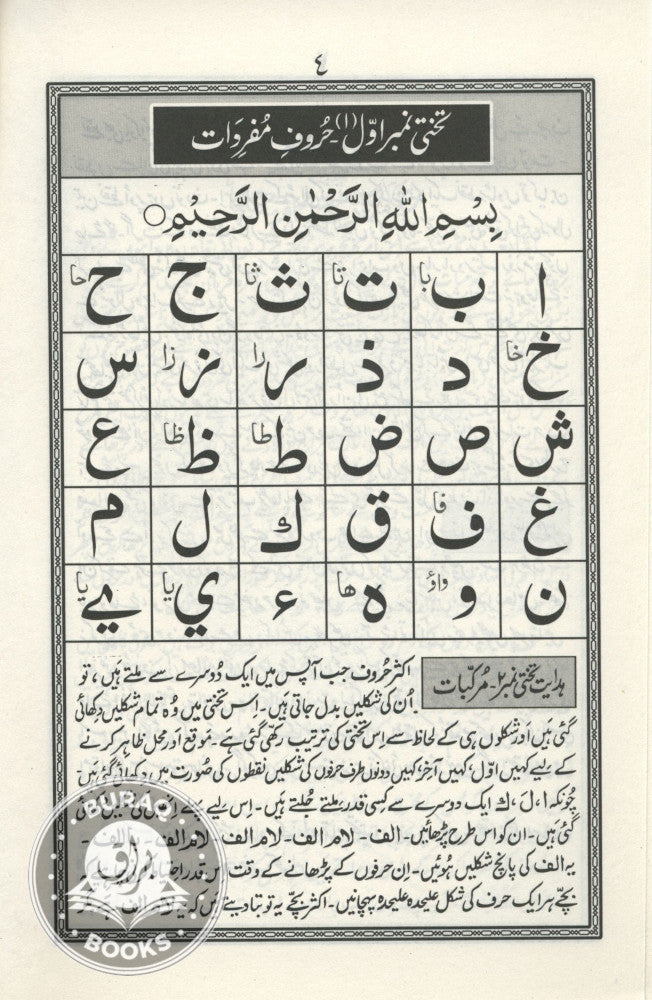 ٤
تختی نمبر اوّل (۱) - حُروفِ مُفرِدَات
بِسْمِ اللهِ الرَّحْمٰنِ الرَّحِيْمِ ○
ا ب با ت تا ث ثا ج ح حا
خ خا د ذ ر را ز زا س
ش ص ض ط طا ظ ظا ع
غ ف فا ق ك ل م
ن و واؤ ه ها ء ي يا ے يا
ہدایت تختی نمبر ۲ - مُرکّبات
اکثر حُروف جب آپس میں ایک دُوسرے سے ملتے ہَیں، تو
اُن کی شکلیں بدل جاتی ہَیں۔ اِس تختی میں وُہ تمام شکلیں دِکھائی
گئی ہَیں اَور شکلوں ہی کے لحاظ سے اِس تختی کی ترتیب رکھی گئی ہے۔ مَوقع اَور محل ظاہر کرنے
کے لِیے کہیں اوّل، کہیں آخر، کہیں دونوں طرف حرفوں کی شکلیں نقطوں کی صُورت میں دِکھائی گئی ہَیں۔
چُونکہ ا، ل، ك ایک دُوسرے سے کِسی قدر مِلتے جُلتے ہَیں۔ اِس لِیے پہلے
گئی ہَیں۔ ان کو اس طرح پڑھائیں۔ الف - لام الف - لام الف - لام الف
یہ الف کی پانچ شکلیں ہُوئیں۔ اِن حرفوں کے پڑھانے کے وقت اِس قدر
بچّے ہر ایک حرف کی شکل علیحدہ علیحدہ پہچانیں۔ اکثر بچّے یہ تو بتا دیتے ہَیں کہ یہ لام الف
BURAQ
براق
BOOKS